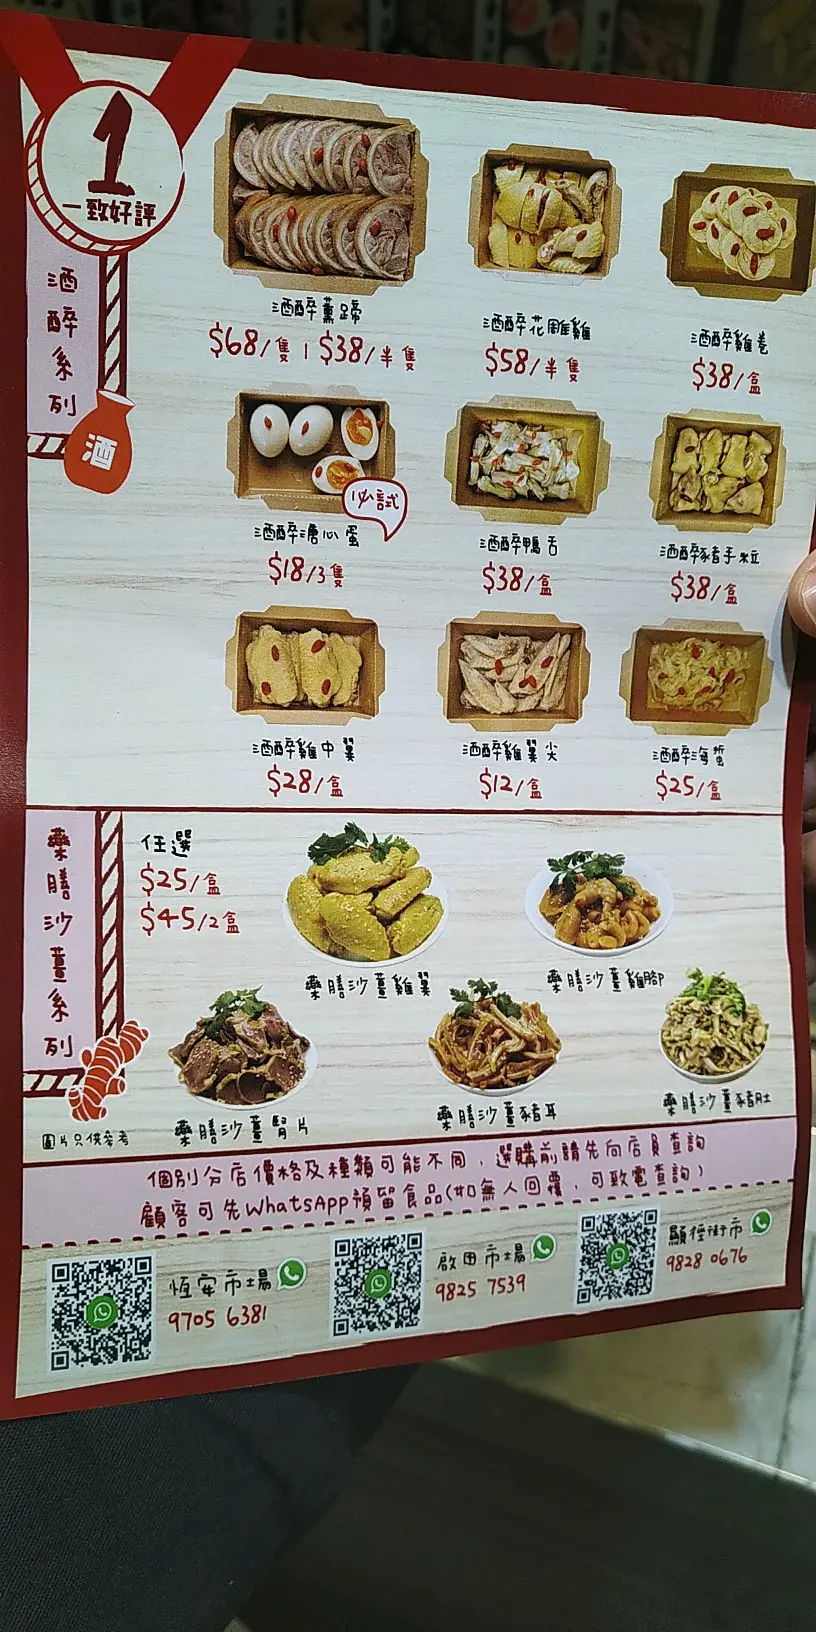 1
一致好評
酒醉系列
酒
酒醉薰蹄
$68/隻 | $38/半隻
酒醉花雕雞
$58/半隻
酒醉雞卷
$38/盒
必試
酒醉溏心蛋
$18/3隻
酒醉鴨舌
$38/盒
酒醉豬手粒
$38/盒
酒醉雞中翼
$28/盒
酒醉雞翼尖
$12/盒
酒醉海蜇
$25/盒
藥膳沙薑系列
任選
$25/盒
$45/2盒
藥膳沙薑雞翼
藥膳沙薑雞腳
藥膳沙薑腎片
藥膳沙薑豬耳
藥膳沙薑豬肚
圖片只供參考
個別分店價格及種類可能不同，選購前請先向店員查詢
顧客可先WhatsApp預留食品(如無人回覆，可致電查詢)
恆安市場
9705 6381
啟田市場
9825 7539
顯徑街市
9828 0676